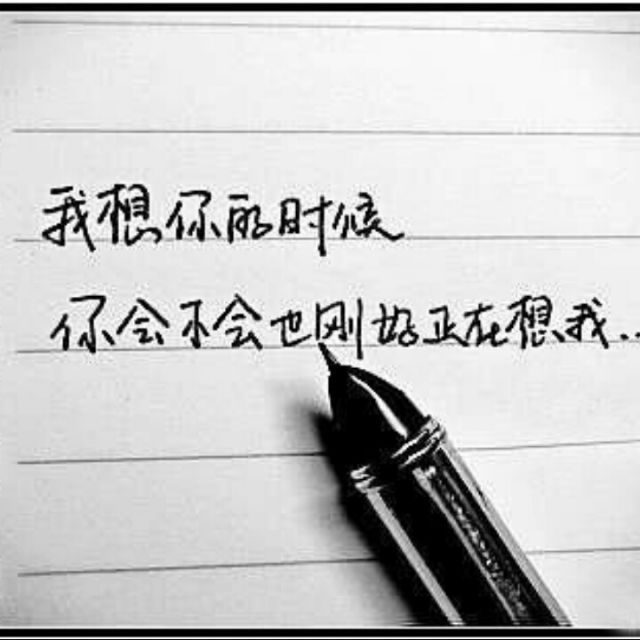 我想你的时候
你会不会也刚好正在想我..